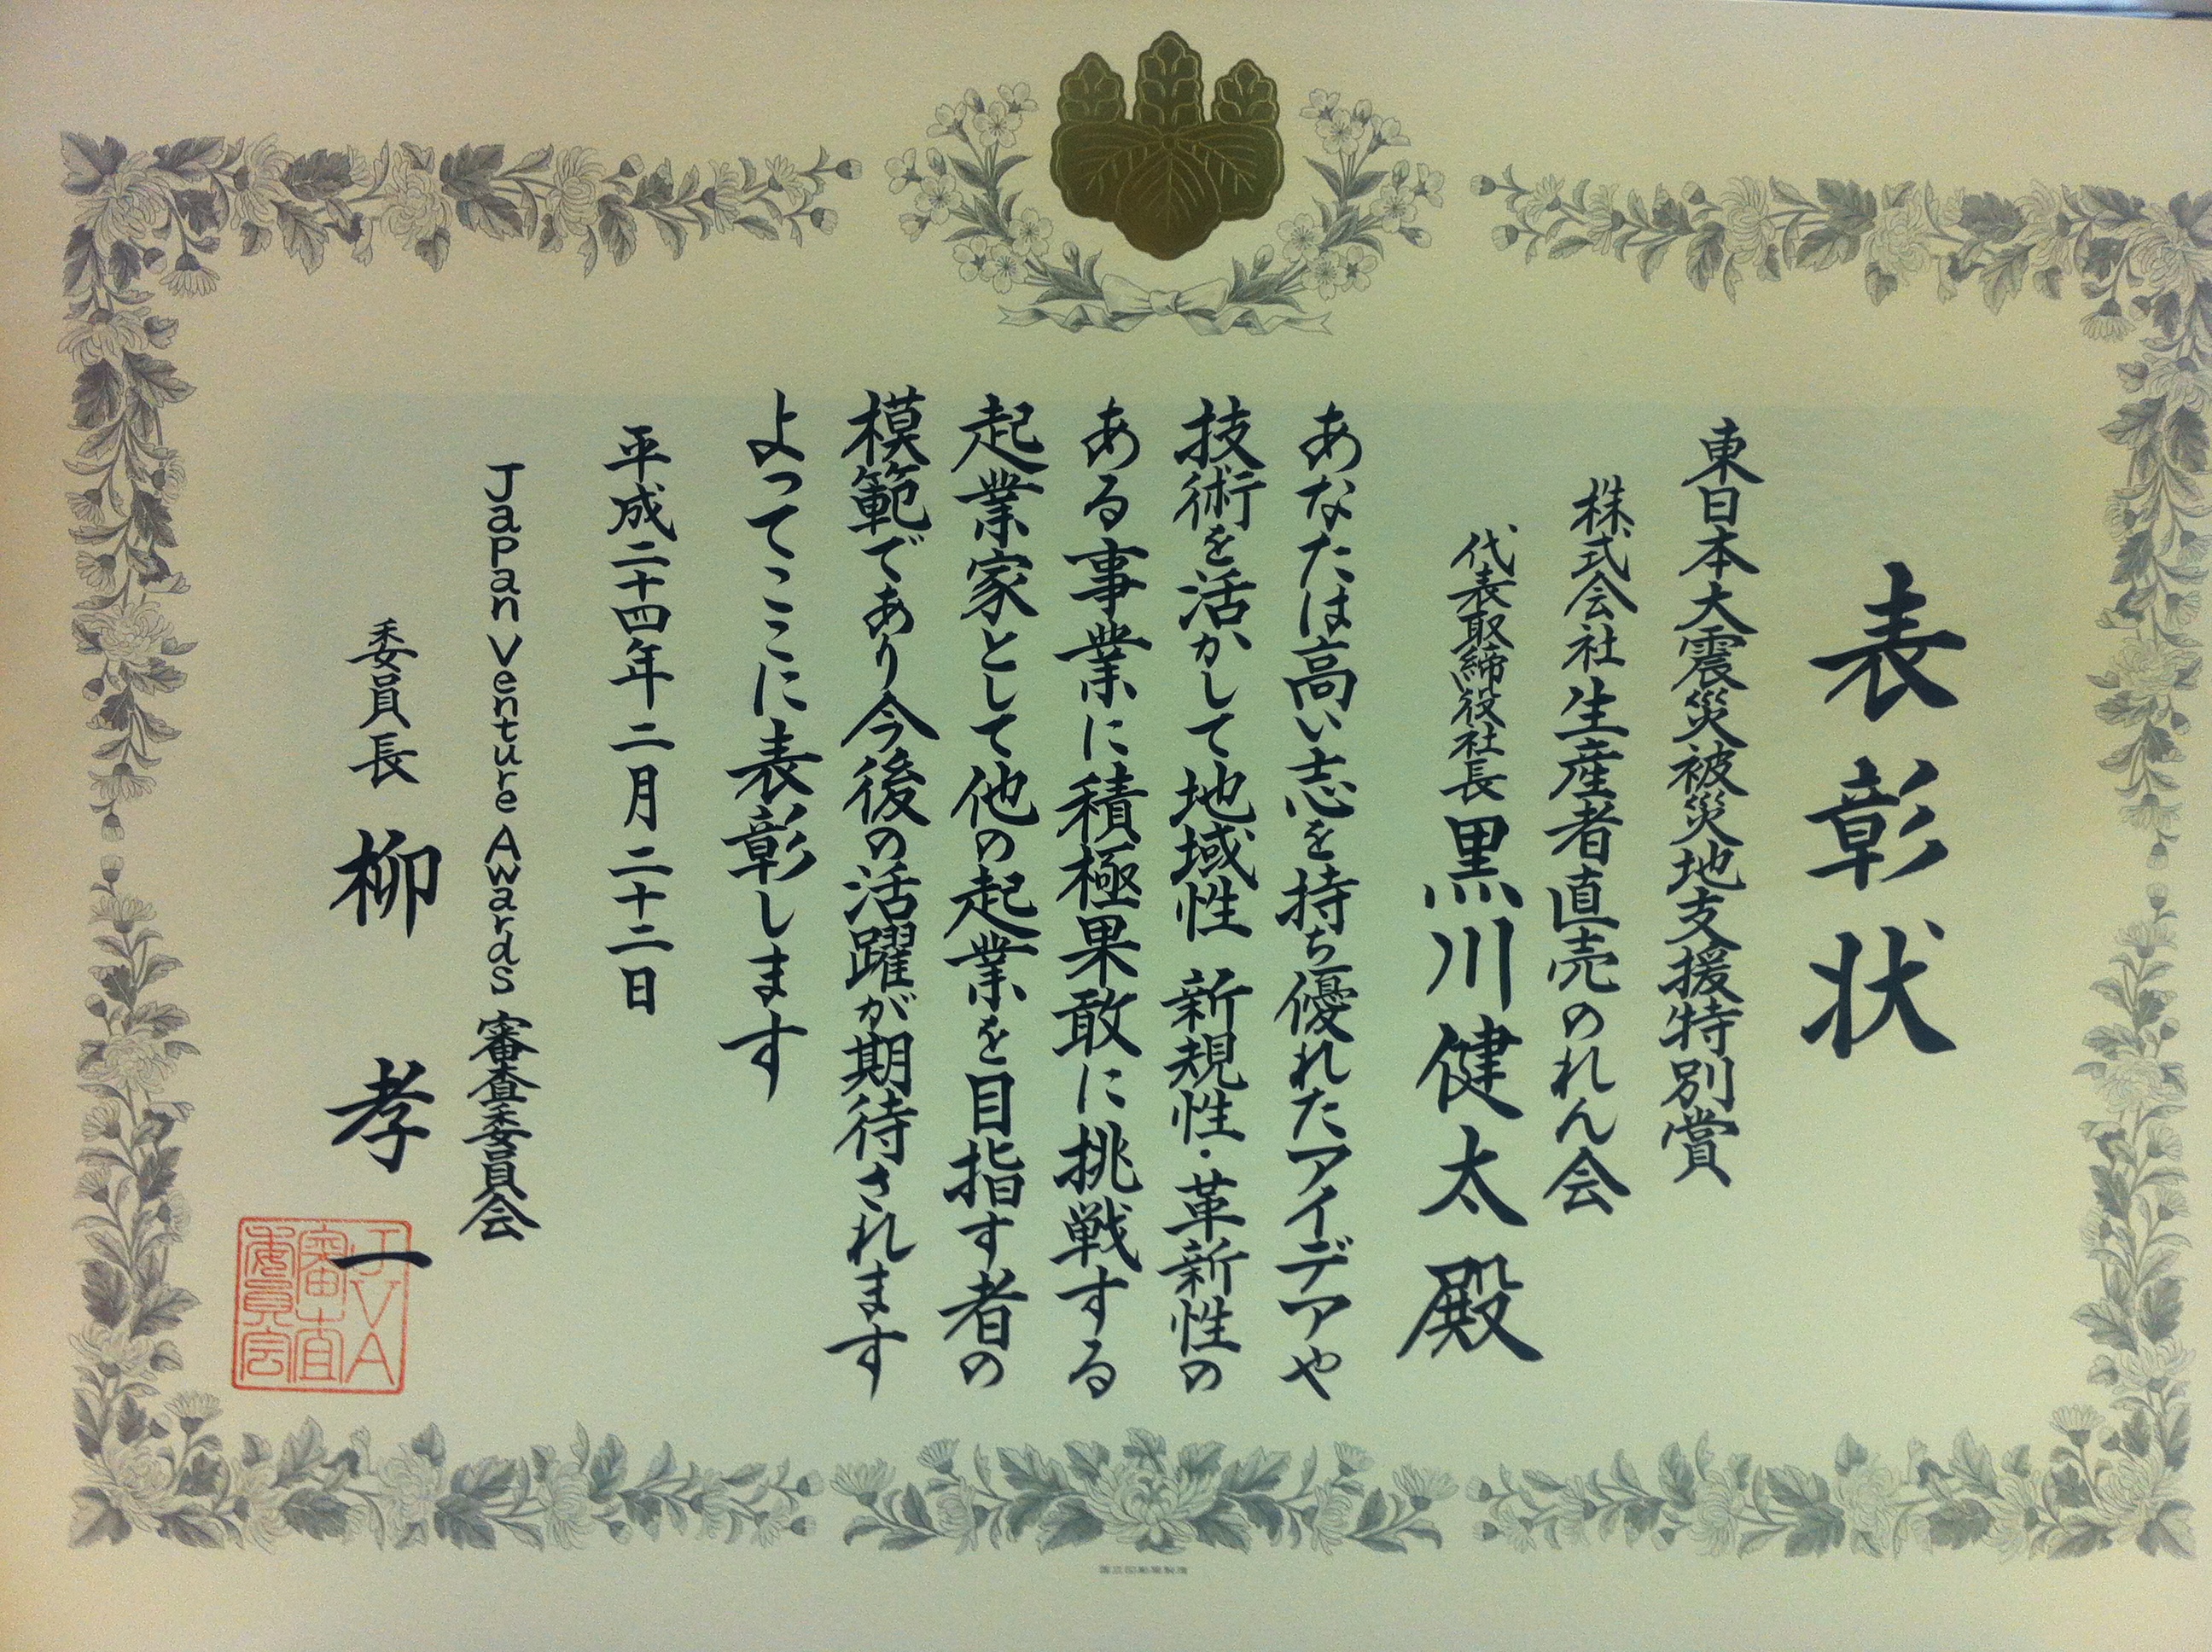 表彰状
東日本大震災被災地支援特別賞
株式会社生産者直売のれん会
代表取締役社長 黒川健太殿
あなたは高い志を持ち優れたアイデアや
技術を活かして地域性 新規性・革新性の
ある事業に積極果敢に挑戦する
起業家として他の起業を目指す者の
模範であり今後の活躍が期待されます
よってここに表彰します
平成二十四年二月二十二日
Japan Venture Awards 審査委員会
委員長 柳 孝一
JVA
審査
委員会
国立印刷局製造